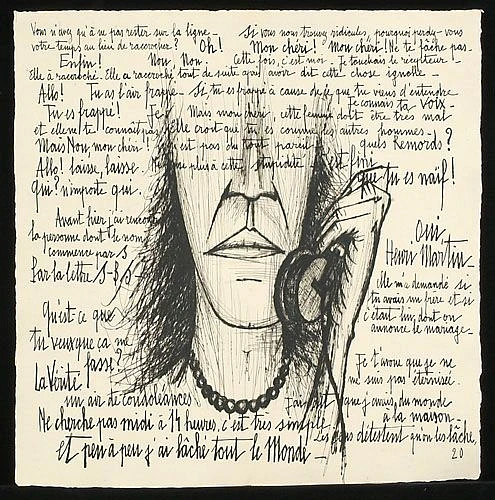 Vous n'avez qu'à ne pas rester sur la ligne - Si vous nous trouvez ridicules, pourquoi perdez-vous
votre temps au lieu de raccrocher? Oh! Mon chéri! Mon chéri! Ne te fâche pas -
Enfin! Non, Non. Cette fois, c'est moi. Je touchais le récepteur!
Elle a raccroché. Elle a raccroché tout de suite après avoir dit cette chose ignoble -
Allo! Tu as l'air frappé - Si, tu es frappé à cause de ce que tu viens d'entendre
Je connais ta voix -
Tu es frappé! Je Mais mon chéri, cette femme doit être très mal
et elle ne te connaît pas Elle croit que tu es comme les autres hommes -
Mais Non, mon chéri! est pas du tout pareil quels Remords?
Allo! laisse, laisse. Ne plus à cette stupidité c'est fini
qui? n'importe qui. que tu es naïf!
Avant hier j'ai rencontré
la personne dont le nom
commence par S
Par la lettre S-B.S-
oui,
Henri Martin
Elle m'a demandé si
tu avais un frère et si
c'était lui, dont on
annonce le mariage -
Qu'est ce que
tu veux que ça me
fasse?
La Vérité
un air de condoléances
Je t'avoue que je ne
me suis pas éternisée.
J'ai dit que j'avais du monde
à la maison -
Ne cherche pas midi à 14 heures, c'est très simple
Les gens détestent qu'on les lâche,
et peu à peu j'ai lâché tout le Monde -
20